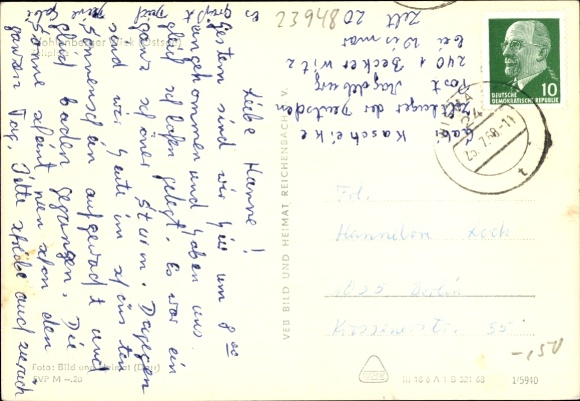 Liebe Hanne!
Gestern sind wir hier um 8 00
angekommen und haben uns
gleich schlafen gelegt. Es war ein
ganz schöner Sturm. Dagegen
sind wir heute im schönsten
Sonnenschein aufgewacht und
gleich baden gegangen. Die
Sonne scheint nun schon den
ganzen Tag. Bitte schreibe auch zurück
Es
grüßt
Gabi
Gabi Kascheike
Zeltlager der Deutschen
Post Magdeburg
2401 Beckerwitz
bei Wismar
Zelt 20
239482
10
DEUTSCHE
DEMOKRATISCHE REPUBLIK
24
25.7.68-11
Frl.
Hannelore
1055 Berlin
55
-,50
VEB BILD UND HEIMAT REICHENBACH I. V.
Foto: Bild und Heimat (Darr)
EVP M -.20
III 18 6 A 1 B 321 68
1/5940